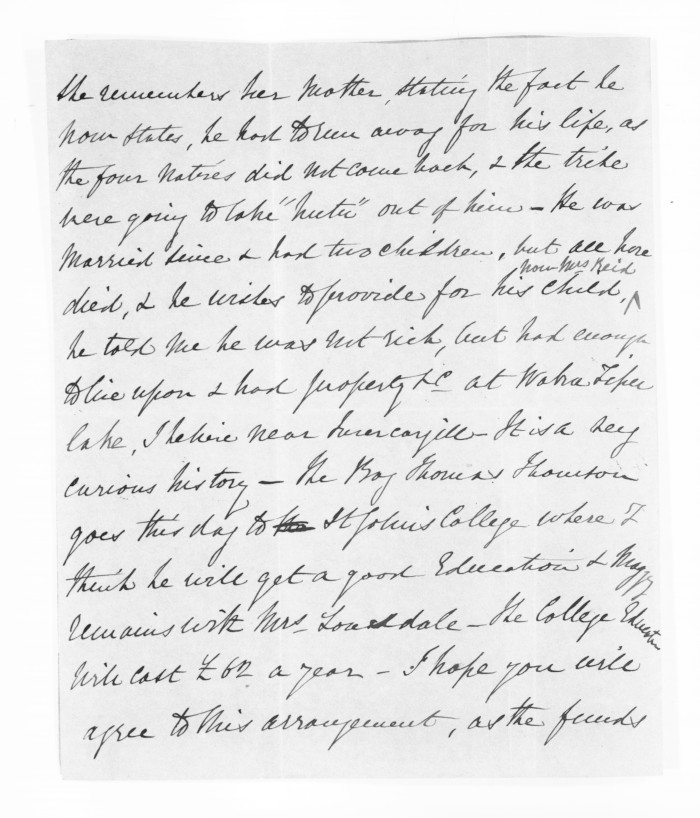 She remembers her Mother, stating the fact he
now states, he had to run away for his life, as
the four Natives did not come back, & the tribe
were going to take "hutu" out of him – He was
Married since & had two children, but all have
now Mrs Reid
died, & he wishes to provide for his child,
he told me he was not rich, but had enough
to live upon & had property &c at Waka Tipu
lake, I believe near Invercargill – It is a very
curious history – The Boy Thomas Thomson
goes this day to the St John's College where I
think he will get a good Education & Maggy
remains with Mrs Lonsdale – The College Education
will cost £62 a year – I hope you will
agree to this arrangement, as the funds